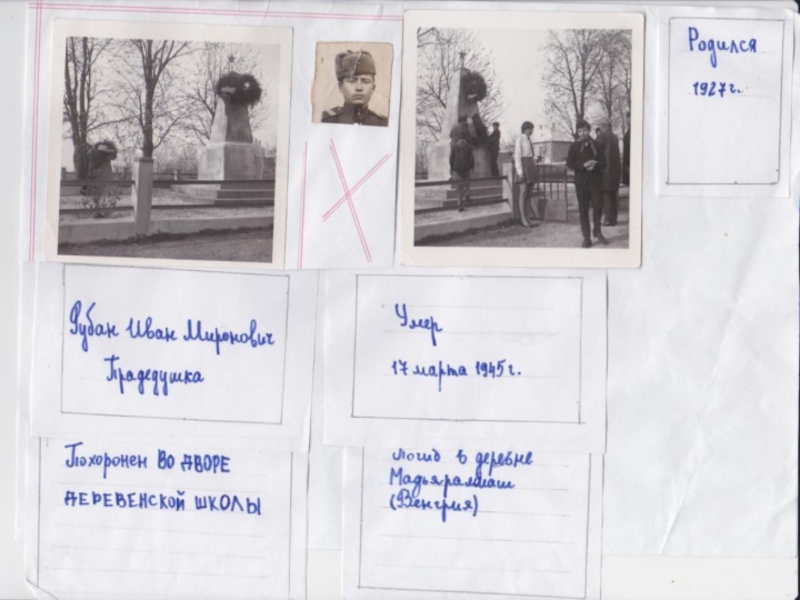 Родился
1927г.
Рубан Иван Миронович
Прадедушка
Умер
17 марта 1945г.
Похоронен во дворе
деревенской школы
Погиб в деревне
Мадьяралмаш
(Венгрия)